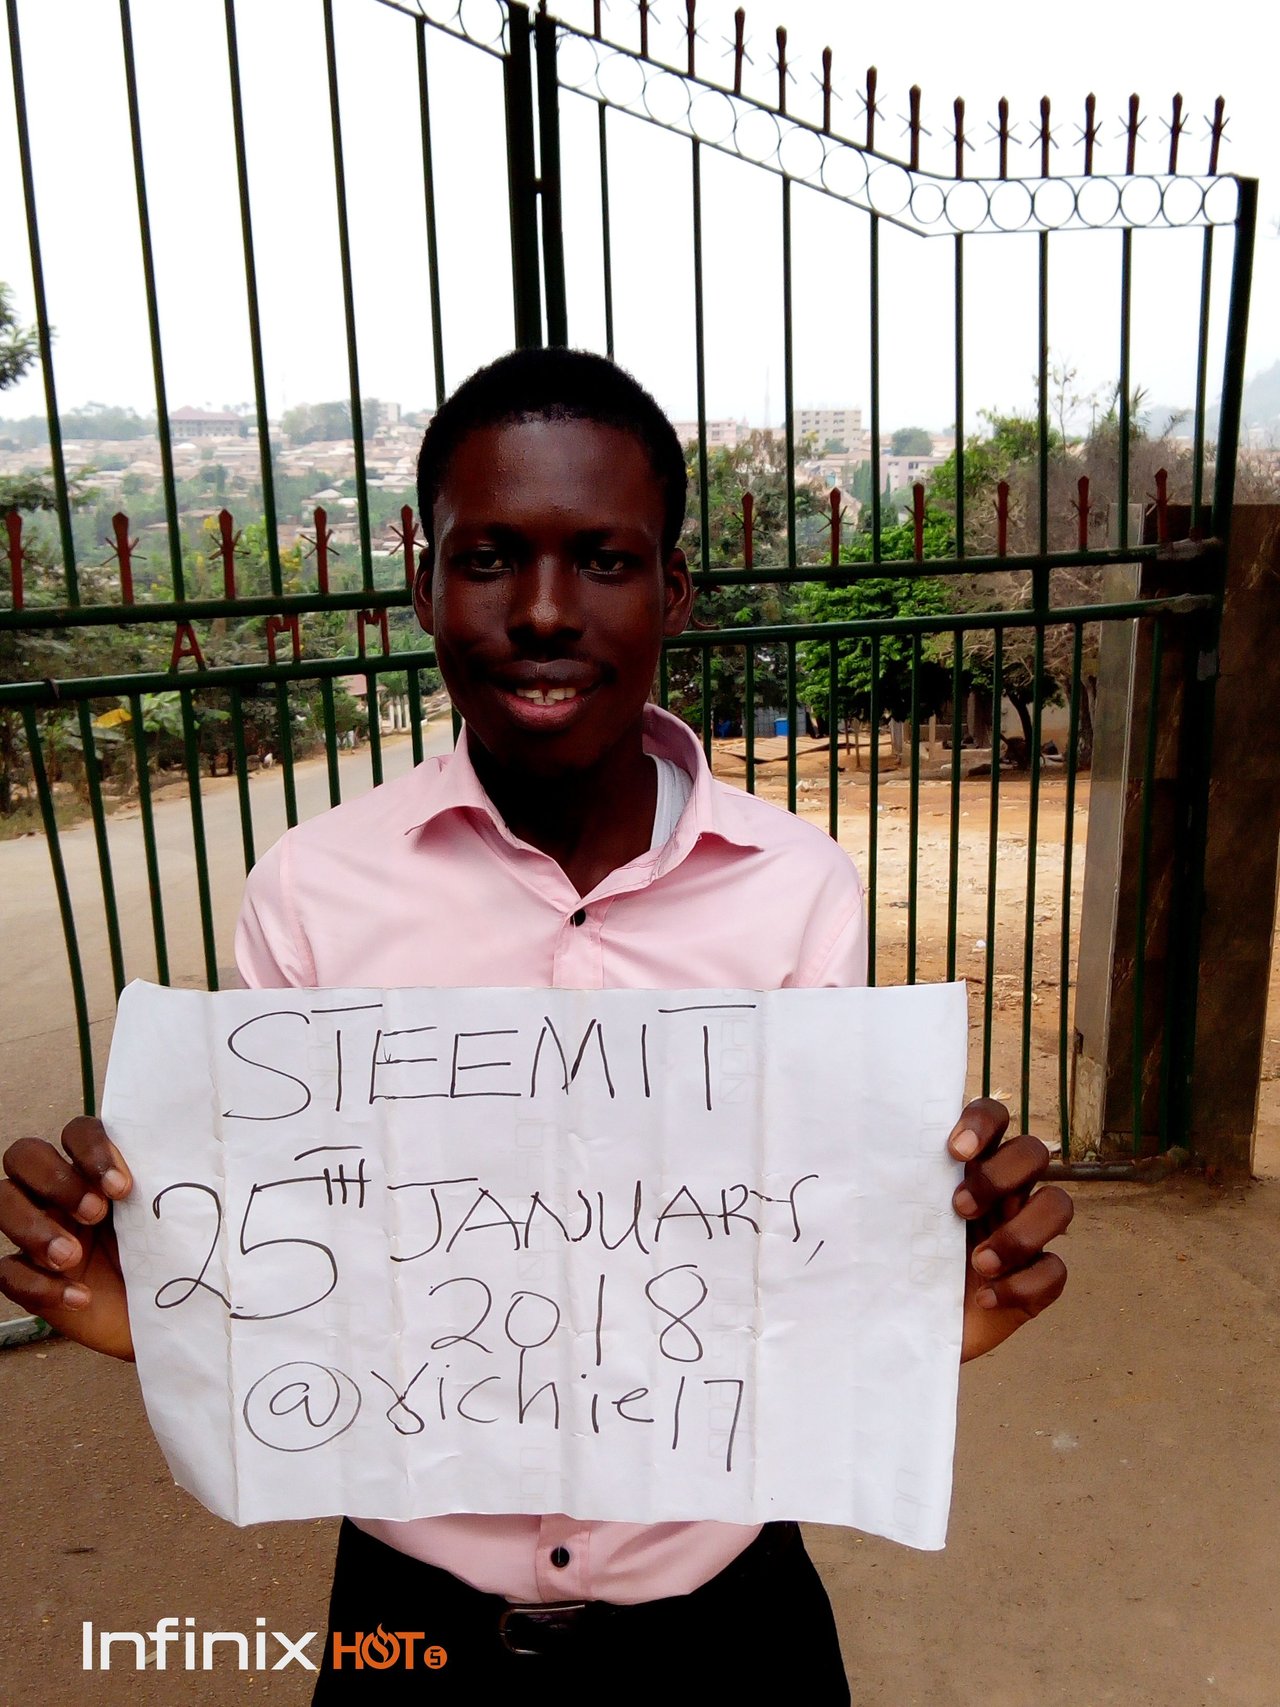 AMM
STEEMIT
25TH JANUARY,
2018
@richie17
Infinix HOT 5